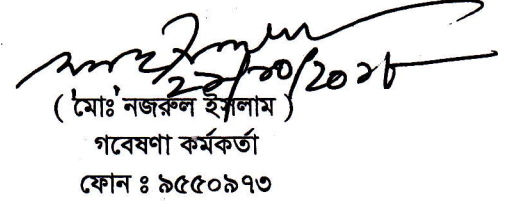 ( মোঃ নজরুল ইসলাম )
গবেষণা কর্মকর্তা
ফোন ঃ ৯৫৫০৯৭৩